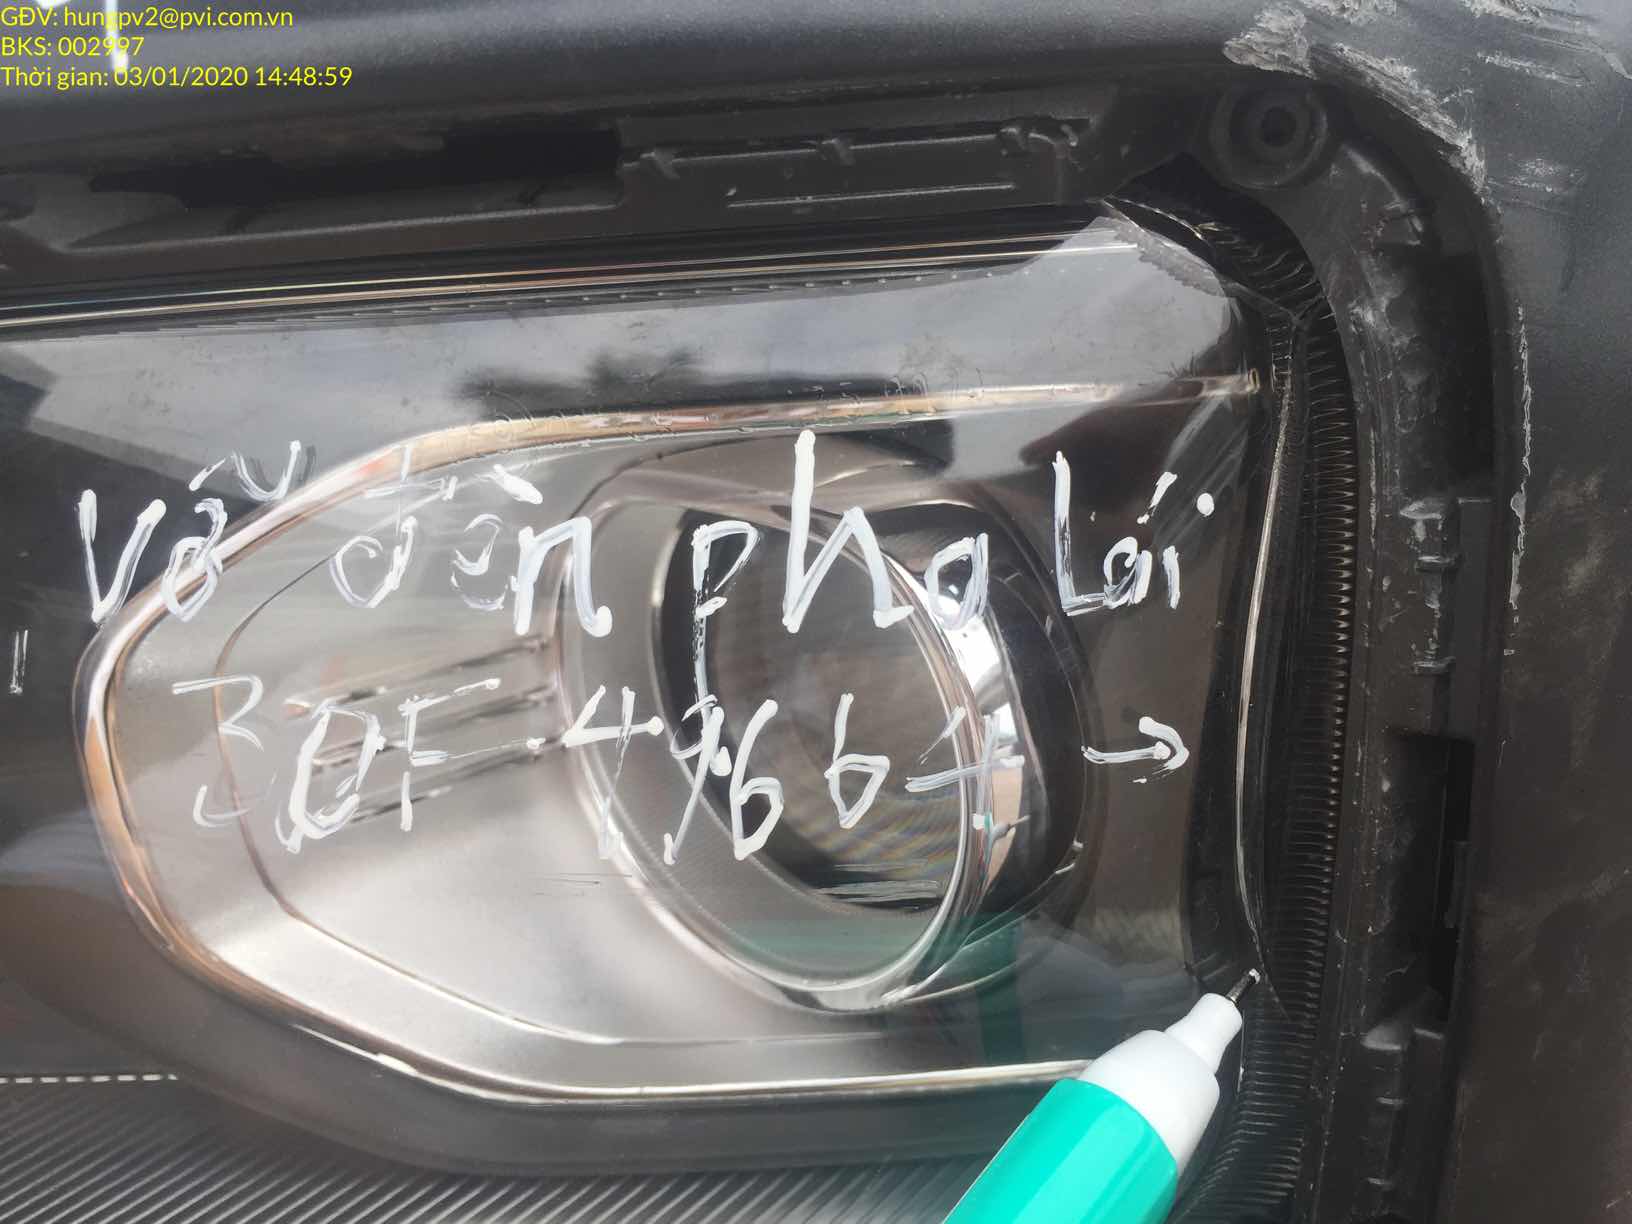 GĐV: hungpv2@pvi.com.vn
BKS: 002997
Thời gian: 03/01/2020 14:48:59
Vỡ đèn pha lái